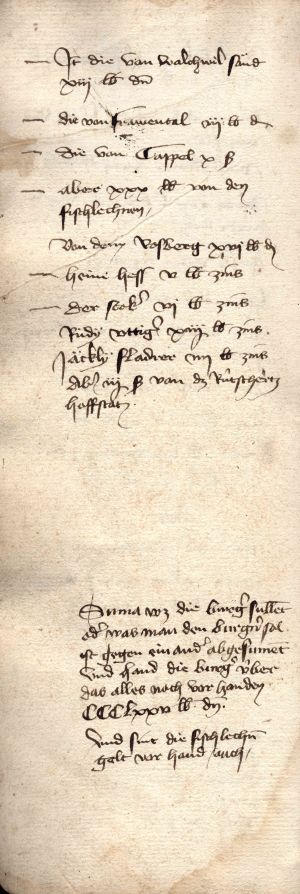 — It die van walchwil sind
xiiij lb dn
— die von framental iiij lb d
— die van Cappel x ß
— aber xxx lb von den
fischlechnen
Von dem Rosberg xvi lb dn
— heini hess v lb zins
— der seckler vi lb zins
Rudy uttiger xiiij lb zins
Jäckly fladrer iiij lb zins
Aber iij ß van der Rütschertz
hoffstatt
Suma wz die burger sullent
oder was man den burgern sol
ist gegen ein ander abgesumet
und hand die burger über
das alles noch vor handen
CCCLxxv lb dn
und sint die fischlechen
gelt vor hand auch